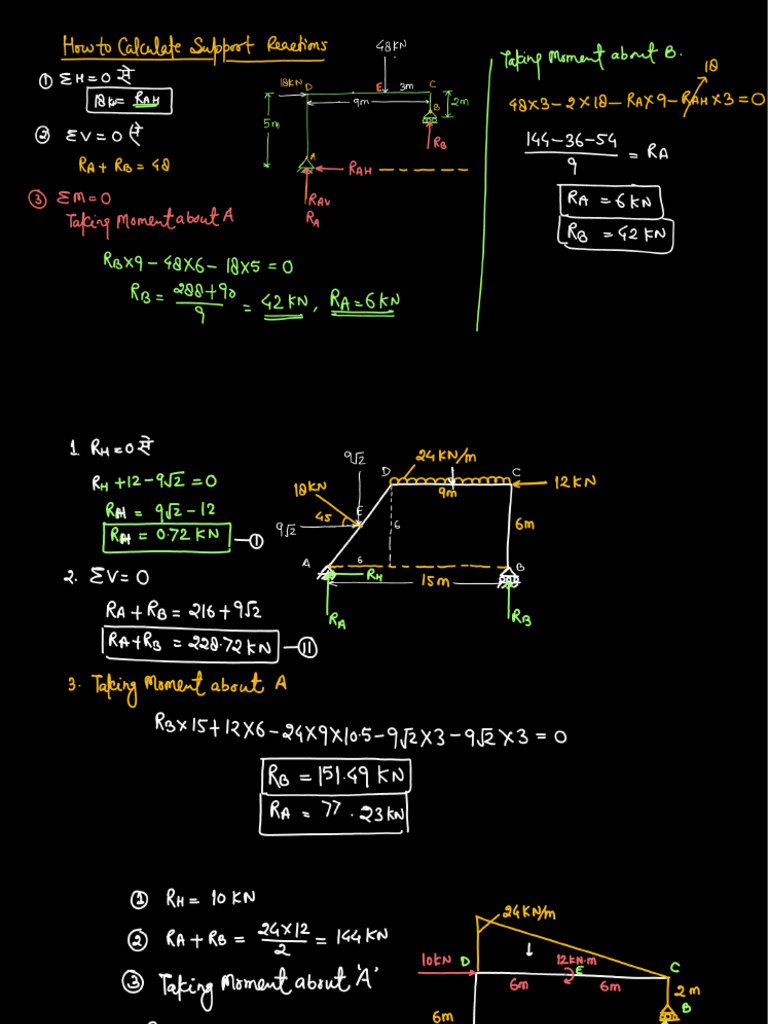 How to Calculate Support Reactions
① ΣH=0 से
18KN= RAH
② ΣV=0 से
RA+RB=48
③ ΣM=0
Taking Moment about A
RB×9-48×6-18×5=0
RB= 288+90
9
= 42 KN, RA=6KN
48KN
18KN D E 3m C
9m
2m
B
5m
RB
A
RAH
RAV
RA
Taking Moment about B.
18
48×3-2×18-RA×9-RAH×3=0
144-36-54
9
= RA
RA =6KN
RB =42KN
1. RH=0 से
RH+12-9√2=0
RAH= 9√2-12
RAH=0.72KN -①
2. ΣV=0
RA+RB=216+9√2
RA+RB=228.72KN -⑪
9√2
24KN/m
D C
12KN
9m
18KN
45 E
9√2
6
6m
A 6
B
RH
15m
RA
RB
3. Taking Moment about A
RB×15+12×6-24×9×10.5-9√2×3-9√2×3=0
RB=151.49KN
RA= 77.23KN
① RH= 10KN
② RA+RB= 24×12
2
=144KN
③ Taking Moment about 'A'
24KN/m
10KN D
12KN·m
E
C
6m 6m
2m
B
6m